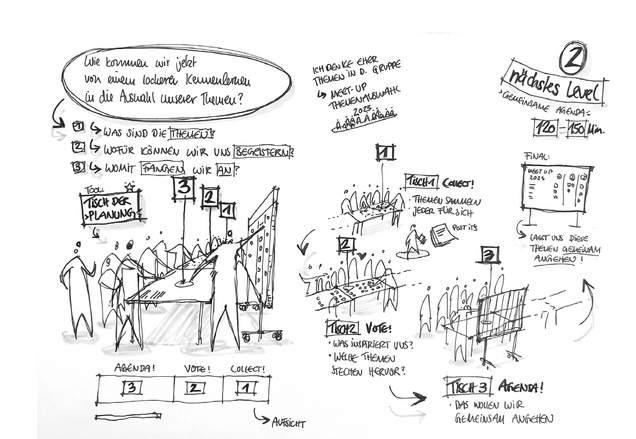 Wie kommen wir jetzt
von einem lockeren Kennenlernen
in die Auswahl unserer Themen?
1 WAS SIND DIE THEMEN?
2 WOFÜR KÖNNEN WIR UNS BEGEISTERN?
3 WOMIT FANGEN WIR AN?
TOOL:
TISCH DER
PLANUNG
3
2
1
AGENDA! VOTE! COLLECT!
3 2 1
AUFSICHT
ICH DENKE EHER
THEMEN IN D. GRUPPE
MEET-UP
THEMENAUSWAHL
2025
1
TISCH 1 COLLECT!
• THEMEN SAMMELN
JEDER FÜR SICH
POST ITS
2
TISCH 2 VOTE!
• WAS INSPIRIERT UNS?
• WELCHE THEMEN
STECHEN HERVOR?
3
TISCH 3 AGENDA!
• DAS WOLLEN WIR
GEMEINSAM ANGEHEN
2
nächstes Level
>GEMEINSAME AGENDA<
120-150 Min.
FINAL:
MEET UP
2025
LASST UNS DIESE
THEMEN GEMEINSAM
ANGEHEN!